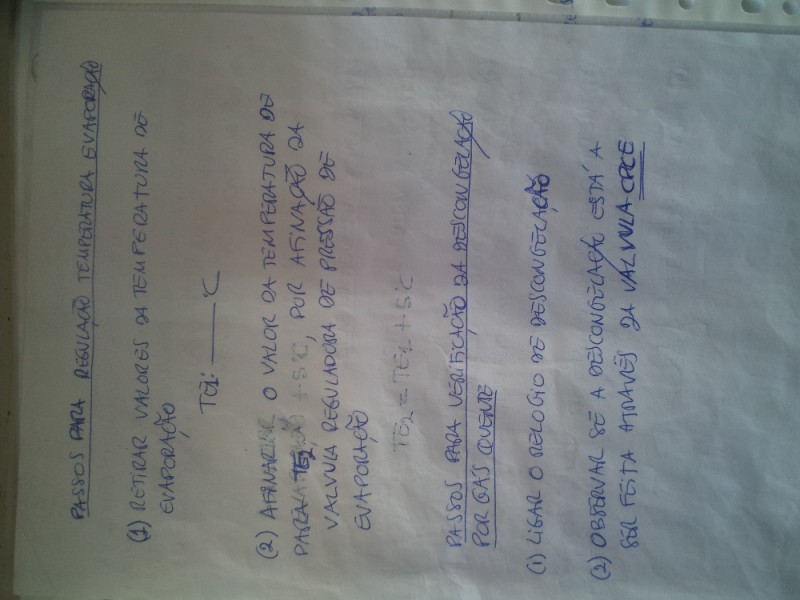 PASSOS PARA REGULAÇÃO TEMPERATURA EVAPORAÇÃO
(1) RETIRAR VALORES DA TEMPERATURA DE
EVAPORAÇÃO
TE1: ____ °C
(2) AFINAR O VALOR DA TEMPERATURA DE
PARA TE2, POR AFINAÇÃO DA
VALVULA REGULADORA DE PRESSÃO DE
EVAPORAÇÃO
TE2 = TE1 + 5°C
PASSOS PARA VERIFICAÇÃO DA DESCONGELAÇÃO
POR GÁS QUENTE
(1) LIGAR O RELOGIO DE DESCONGELAÇÃO
(2) OBSERVAR SE A DESCONGELAÇÃO ESTÁ A
SER FEITA ATRAVÉS DA VÁLVULA CPCE